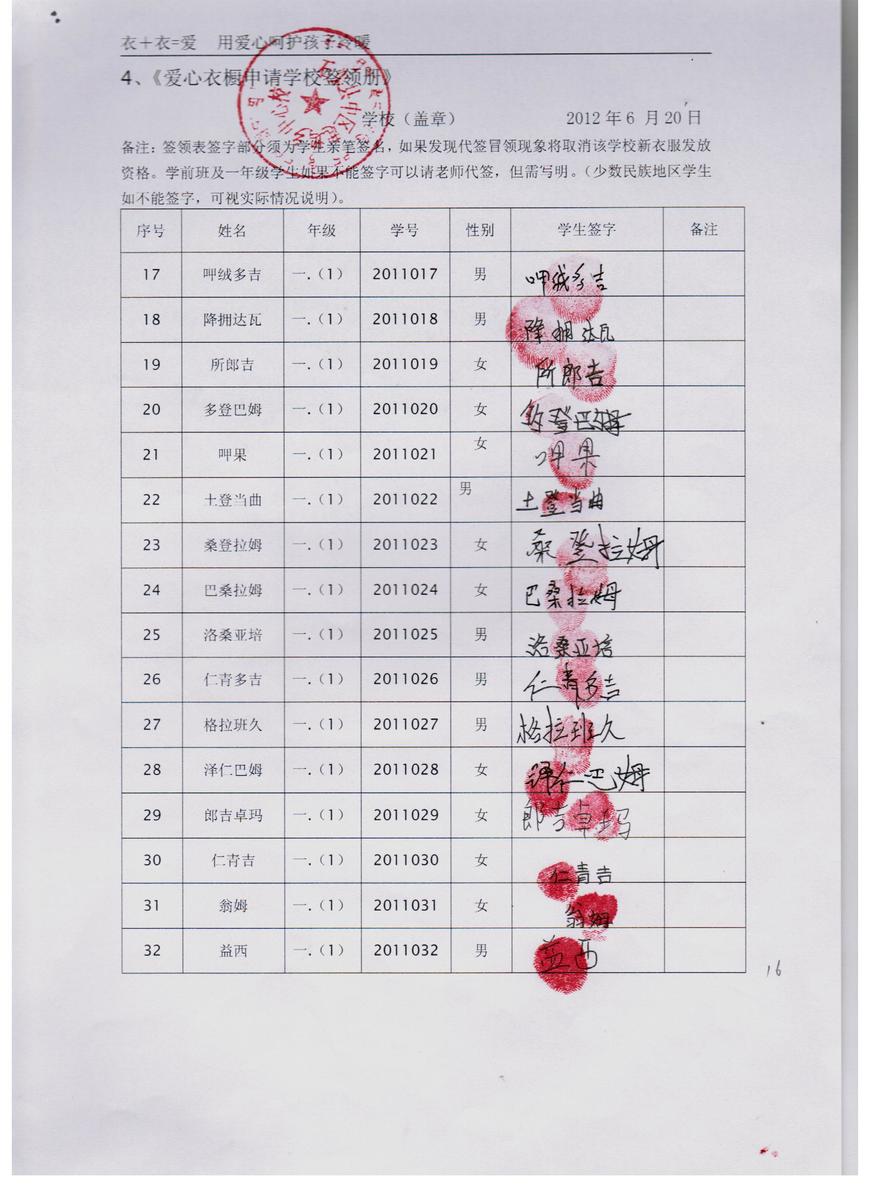 衣+衣=爱 用爱心呵护孩子冷暖
4、《爱心衣橱申请学校签领册》
学校（盖章） 2012年6月20日
备注：签领表签字部分须为学生亲笔签名，如果发现代签冒领现象将取消该学校新衣服发放
资格。学前班及一年级学生如果不能签字可以请老师代签，但需写明。（少数民族地区学生
如不能签字，可视实际情况说明）。
序号 姓名 年级 学号 性别 学生签字 备注
17 呷绒多吉 一.（1） 2011017 男 呷绒多吉
18 降拥达瓦 一.（1） 2011018 男 降拥达瓦
19 所郎吉 一.（1） 2011019 女 所郎吉
20 多登巴姆 一.（1） 2011020 女 多登巴姆
21 呷果 一.（1） 2011021 女 呷果
22 土登当曲 一.（1） 2011022 男 土登当曲
23 桑登拉姆 一.（1） 2011023 女 桑登拉姆
24 巴桑拉姆 一.（1） 2011024 女 巴桑拉姆
25 洛桑亚培 一.（1） 2011025 男 洛桑亚培
26 仁青多吉 一.（1） 2011026 男 仁青多吉
27 格拉班久 一.（1） 2011027 男 格拉班久
28 泽仁巴姆 一.（1） 2011028 女 泽仁巴姆
29 郎吉卓玛 一.（1） 2011029 女 郎吉卓玛
30 仁青吉 一.（1） 2011030 女 仁青吉
31 翁姆 一.（1） 2011031 女 翁姆
32 益西 一.（1） 2011032 男 益西
16